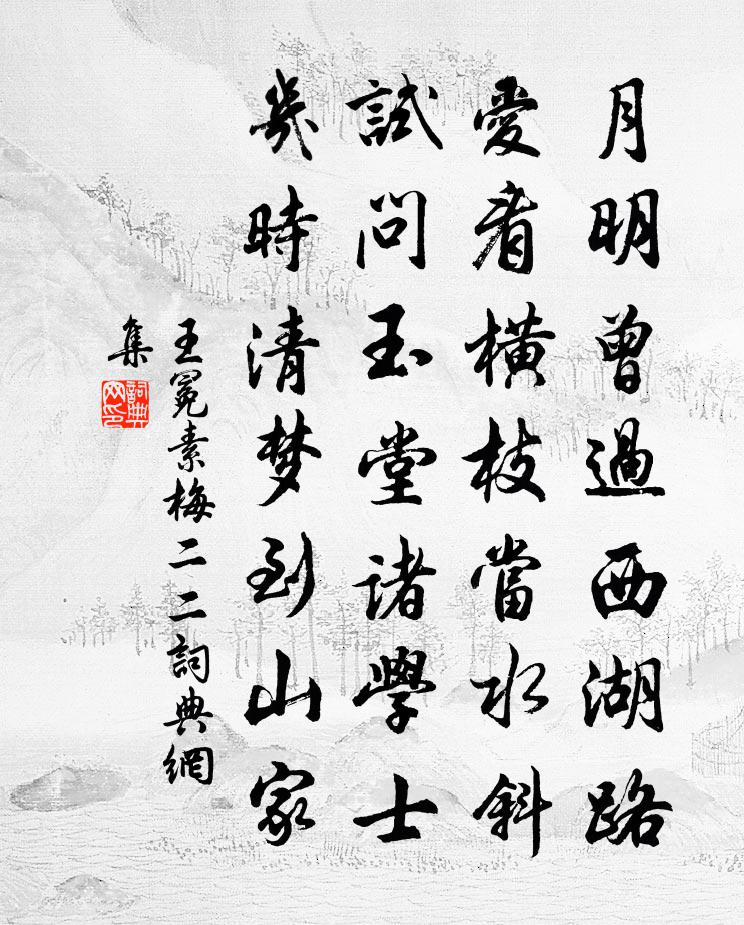 月明曾過西湖路
愛看橫枝當水斜
試問玉堂諸學士
幾時清梦到山家
王冕素梅二二詞典網
集
詞典
网印